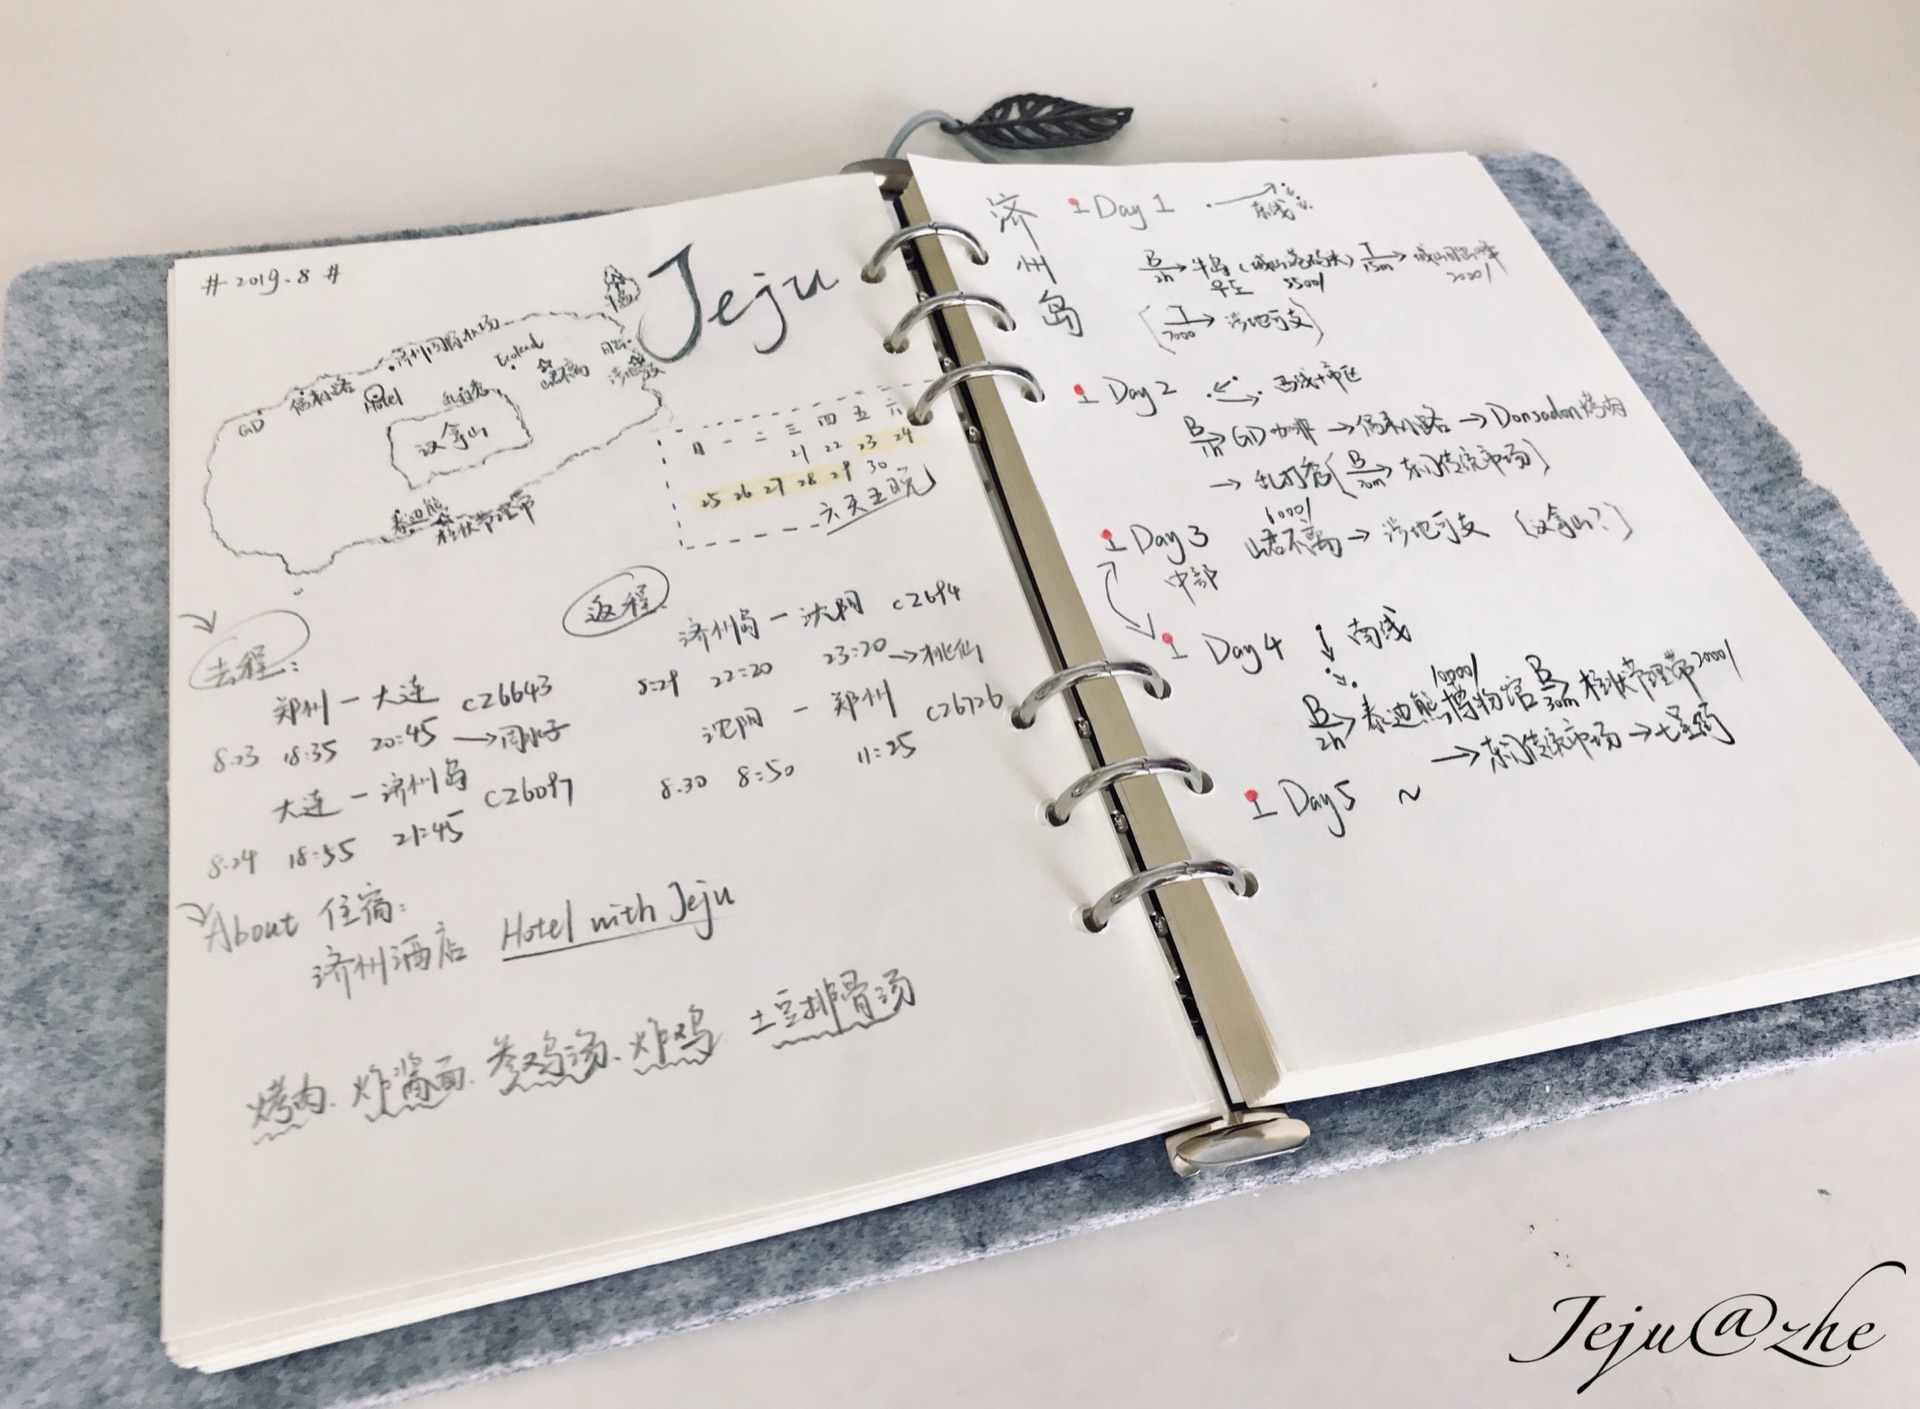 # 2019.8 #
Jeju
济州国际机场
Ecoland
山君不离
日出
涉地可支
偶来小路
Hotel
乱打秀
GD
汉拿山
泰迪熊
柱状节理带
日 一 二 三 四 五 六
21 22 23 24
25 26 27 28 29 30
六天五晚
去程:
郑州 — 大连 CZ6643
8.23 18:35 20:45 →周水子
大连 — 济州岛 CZ6097
8.24 18:55 21:45
返程:
济州岛 — 沈阳 CZ694
8.29 22:20 23:20 →桃仙
沈阳 — 郑州 CZ6726
8.30 8:50 11:25
About 住宿:
济州酒店 Hotel with Jeju
烤肉、炸酱面、参鸡汤、炸鸡 土豆排骨汤
济州岛
Day 1 东线
B 2h → 牛岛 (城山港码头) T 15m → 城山日出峰
우도 5500/ 2000/
(T 7000 → 涉地可支)
Day 2 西线+市区
B 1h → GD咖啡 → 偶来小路 → Donsadon烤肉
→ 乱打秀 (B 20m → 东门传统市场)
6000/
Day 3 山君不离 → 涉地可支 (汉拿山?)
中部
Day 4 南线
10000/ 2000/
B 2h → 泰迪熊博物馆 B 30m 柱状节理带
→ 东门传统市场 → 七星药
Day 5 ~
Jeju@zhe